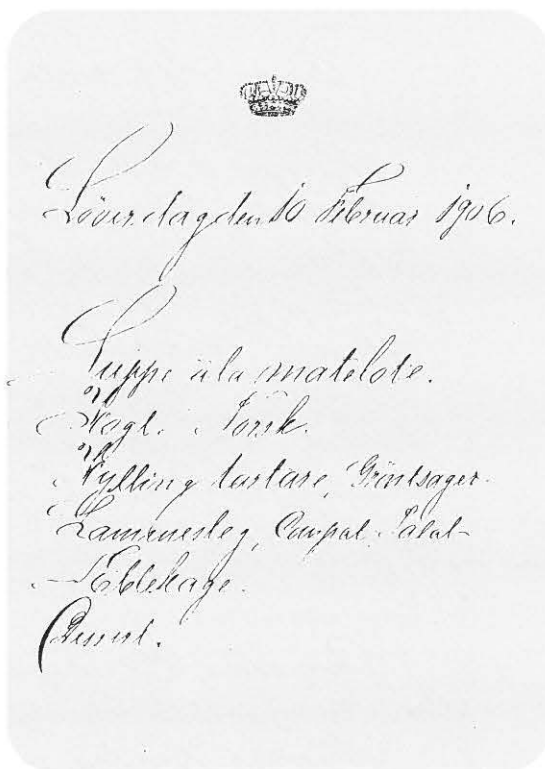 Löverdag den 10 Februar 1906.
Suppe à la matelote.
Kogt Torsk.
Kylling tartare, Gröntsager.
Lammesteg, Salat
Æblekage.
Dessert.